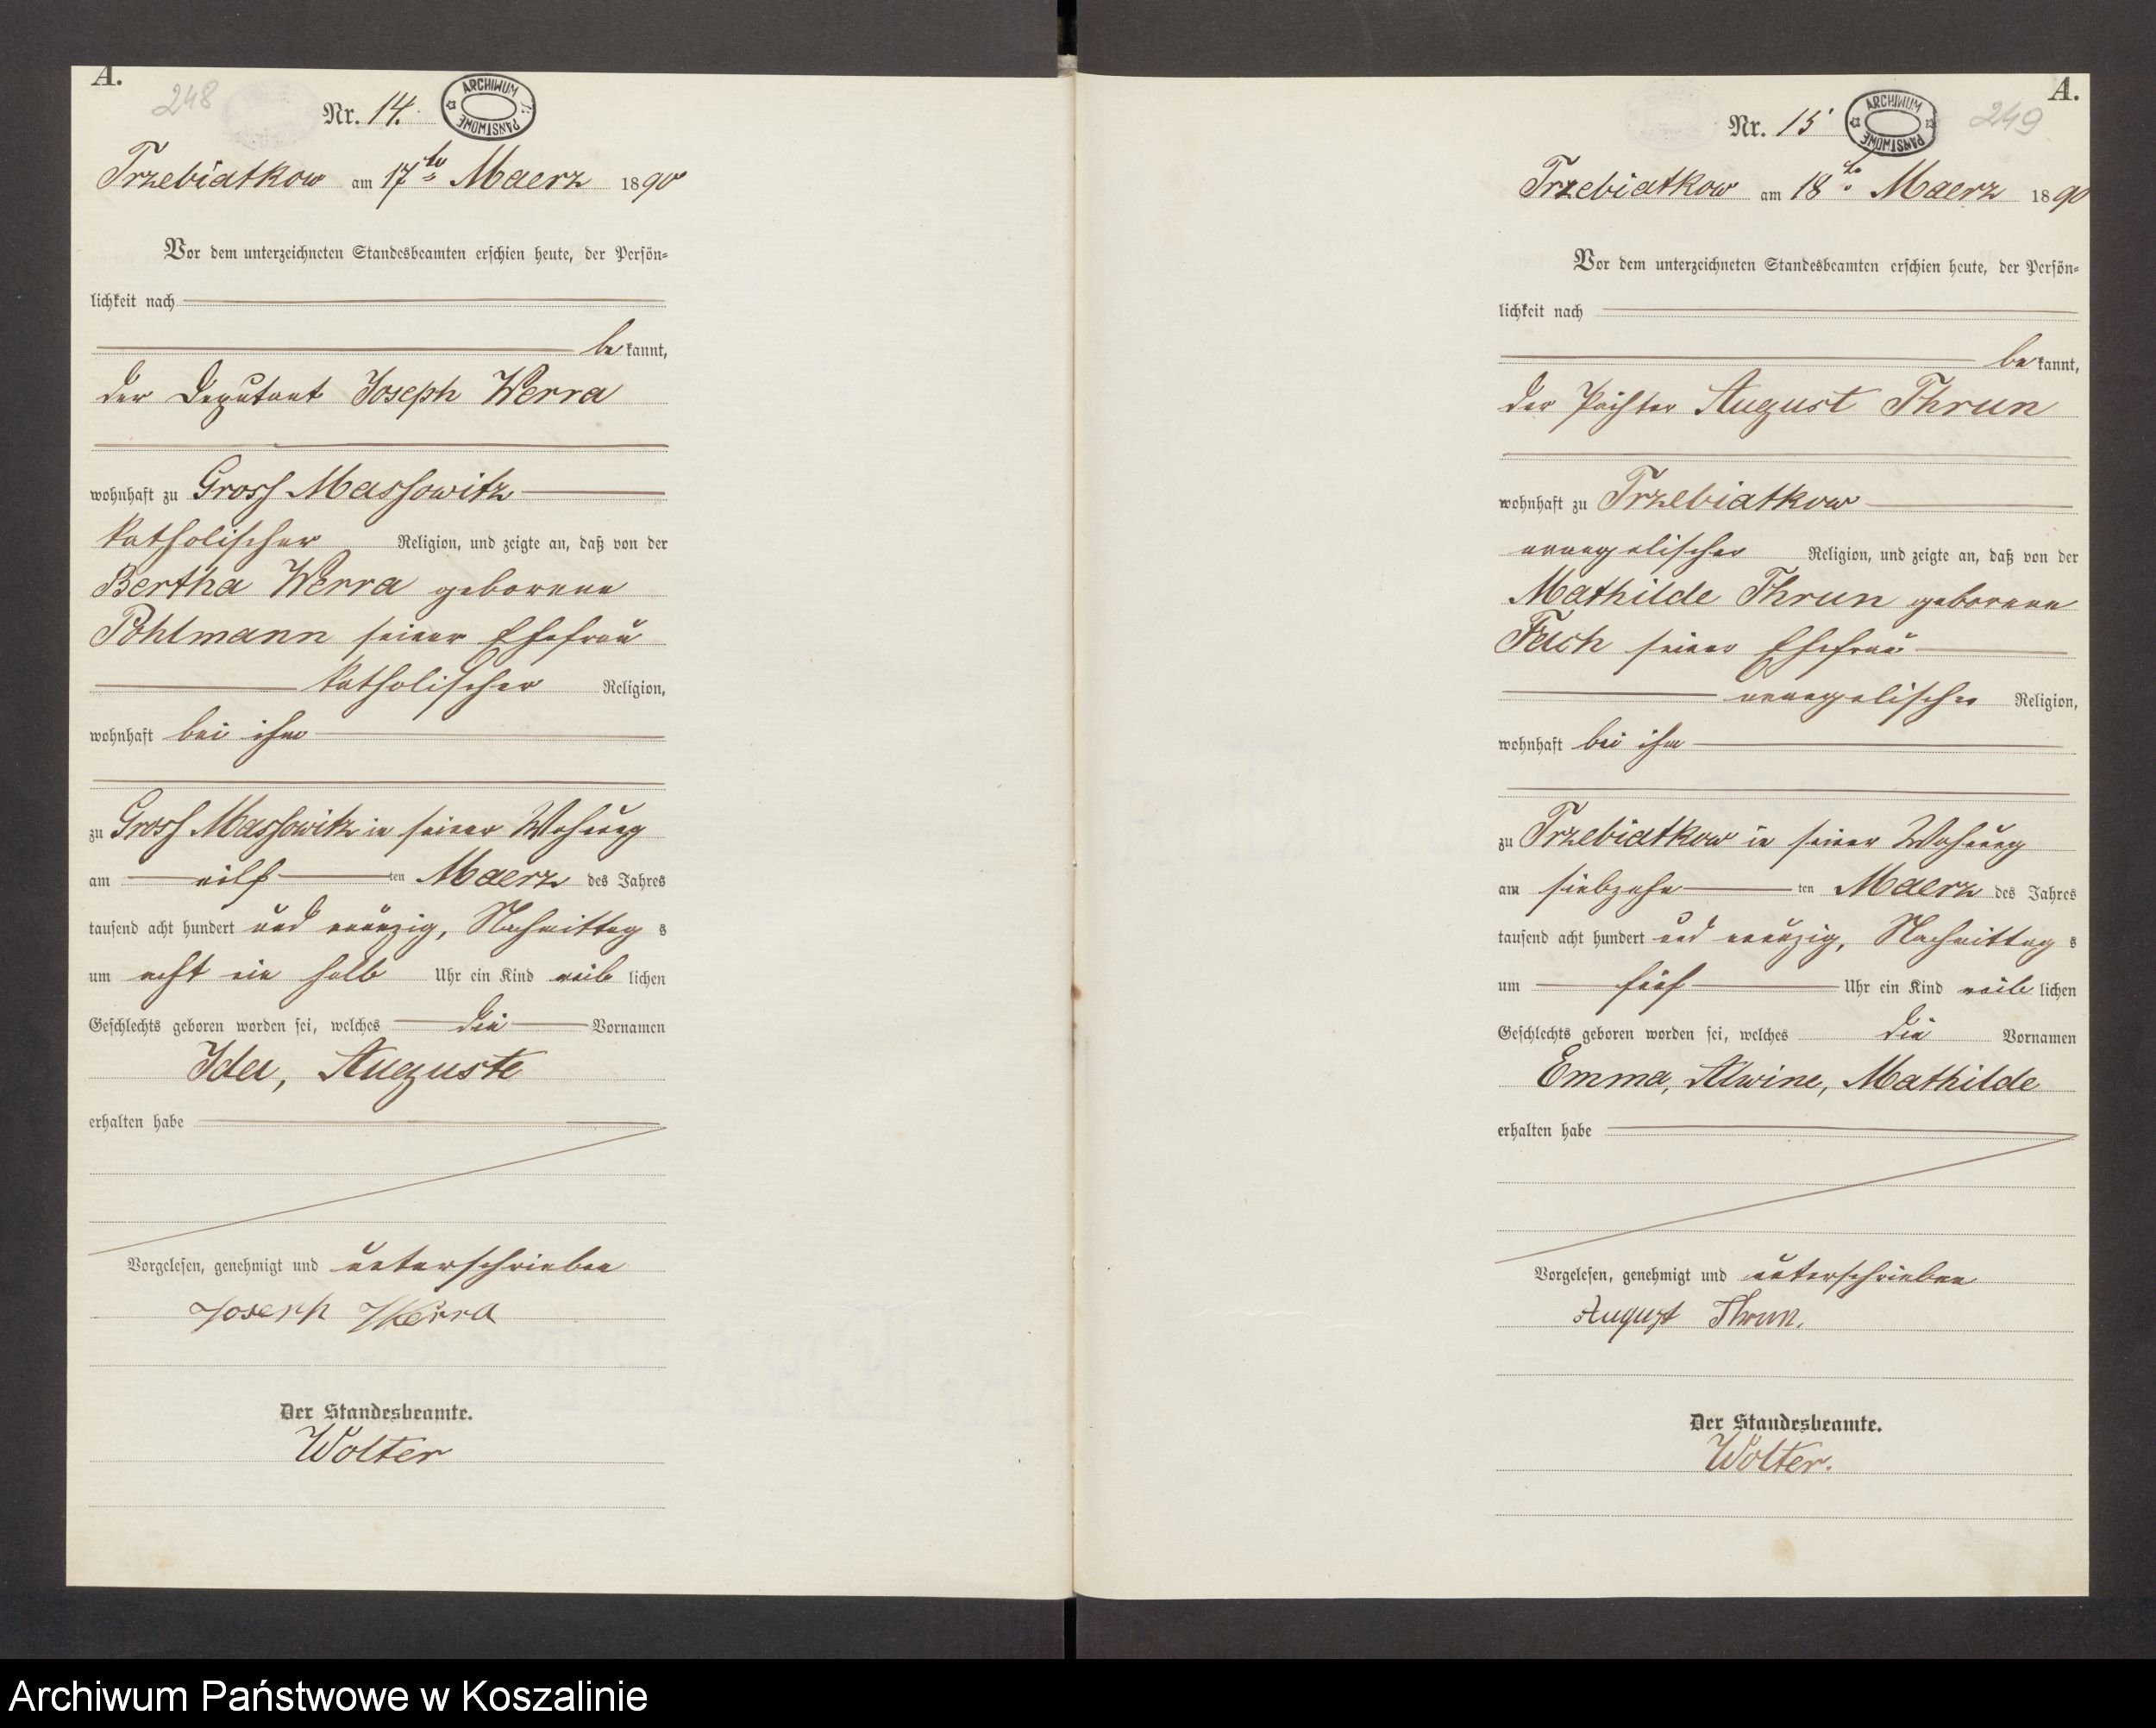 A.
248
Nr. 14.
ARCHIWUM PAŃSTWOWE
Trzebiatkow am 17ten Maerz 1890
Vor dem unterzeichneten Standesbeamten erschien heute, der Persön-
lichkeit nach
be kannt,
der Deputant Joseph Werra
wohnhaft zu Gross Massowitz
katholischer Religion, und zeigte an, daß von der
Bertha Werra geborene
Pöhlmann seiner Ehefrau
katholischer Religion,
wohnhaft bei ihm
zu Gross Massowitz in seiner Wohnung
am eilf ten Maerz des Jahres
tausend acht hundert und neunzig, Nachmittag s
um acht ein halb Uhr ein Kind weib lichen
Geschlechts geboren worden sei, welches die Vornamen
Ida, Auguste
erhalten habe
Vorgelesen, genehmigt und unterschrieben
Joseph Werra
Der Standesbeamte.
Wolter
A.
249
Nr. 15
ARCHIWUM PAŃSTWOWE
Trzebiatkow am 18ten Maerz 1890
Vor dem unterzeichneten Standesbeamten erschien heute, der Persön-
lichkeit nach
be kannt,
der Pächter August Thrun
wohnhaft zu Trzebiatkow
evangelischer Religion, und zeigte an, daß von der
Mathilde Thrun geborene
seiner Ehefrau
evangelischer Religion,
wohnhaft bei ihm
zu Trzebiatkow in seiner Wohnung
am siebzehn ten Maerz des Jahres
tausend acht hundert und neunzig, Nachmittag s
um fünf Uhr ein Kind weib lichen
Geschlechts geboren worden sei, welches die Vornamen
Emma, Alwine, Mathilde
erhalten habe
Vorgelesen, genehmigt und unterschrieben
August Thrun.
Der Standesbeamte.
Wolter.
Archiwum Państwowe w Koszalinie